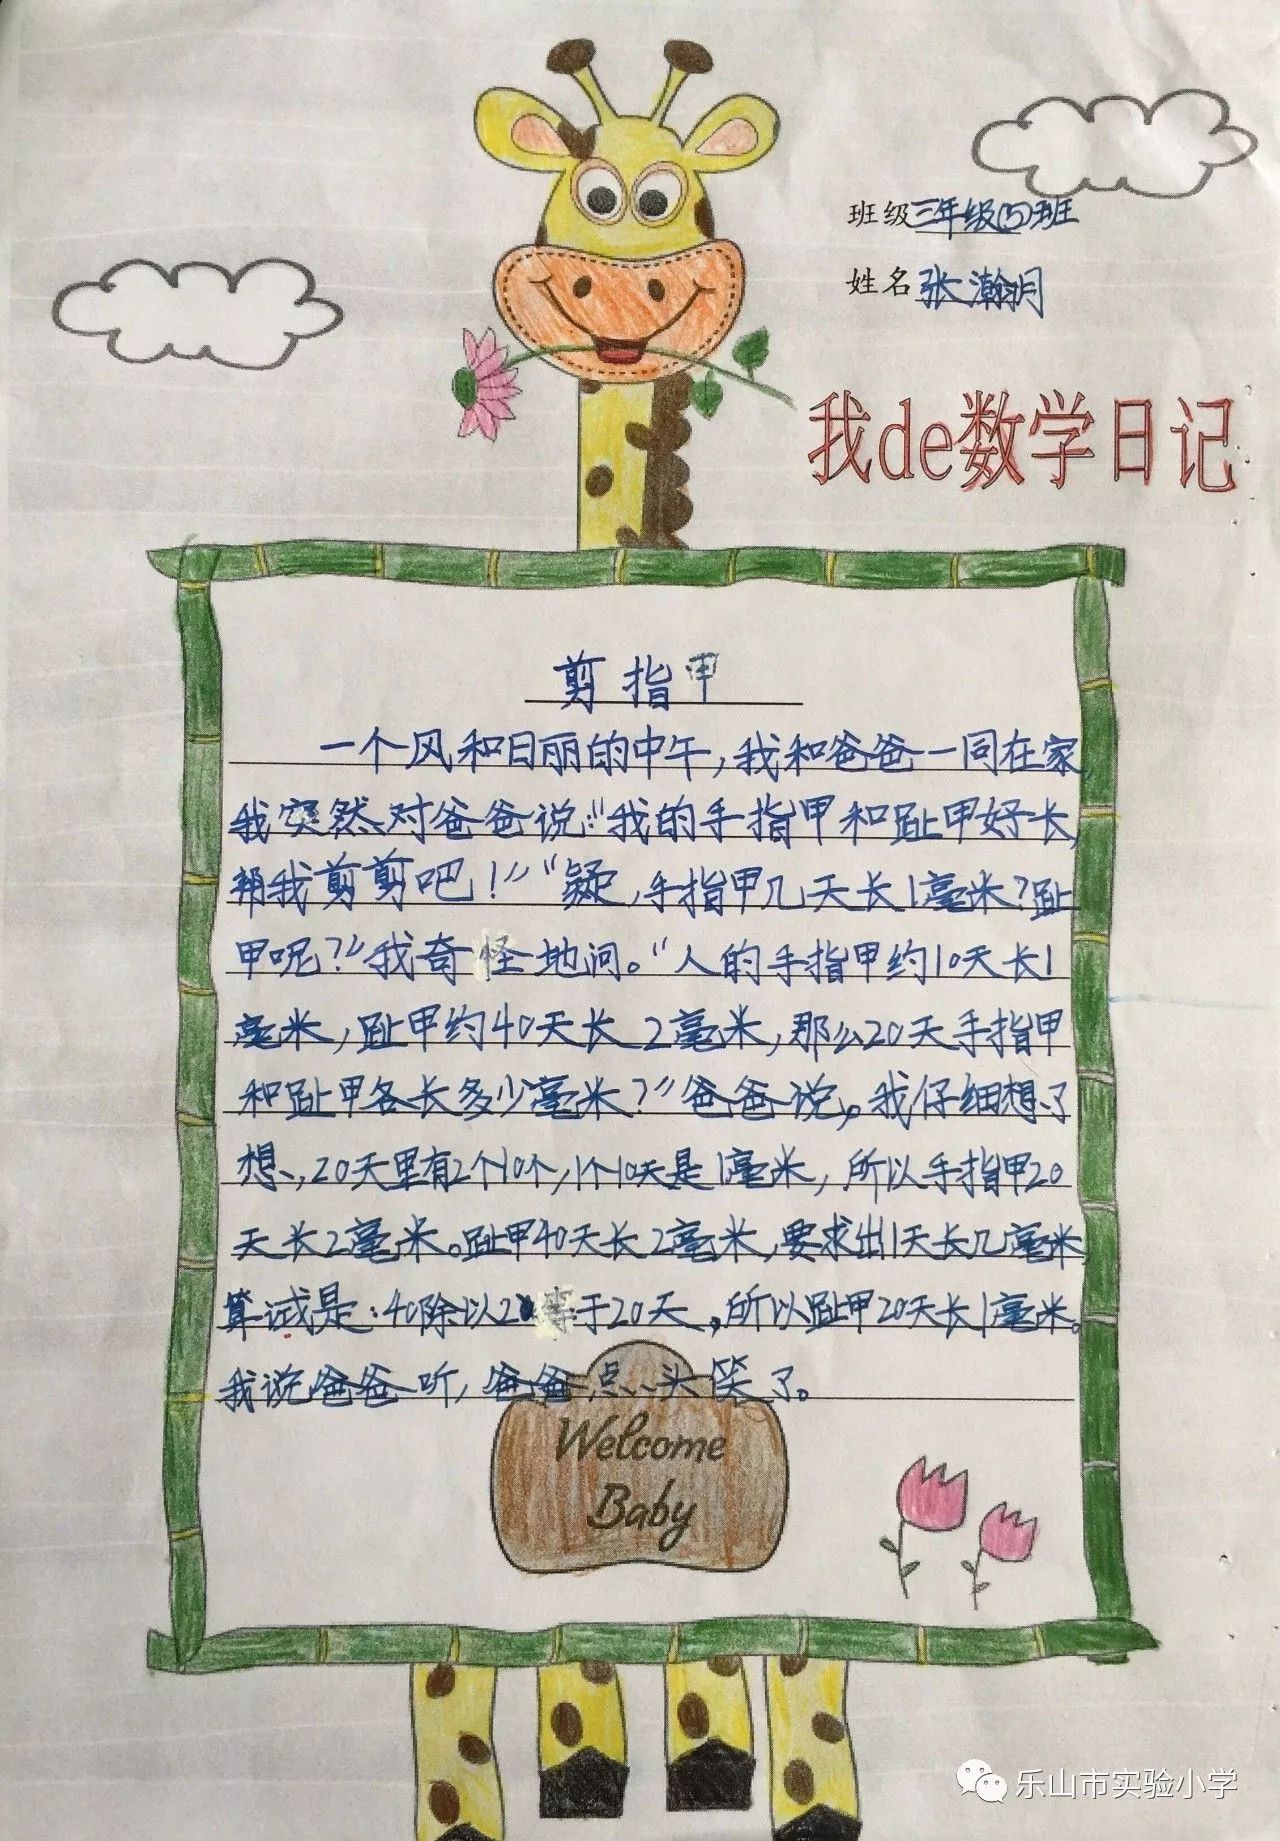 班级三年级(5)班
姓名张瀚月
我de数学日记
剪指甲
一个风和日丽的中午,我和爸爸一同在家,
我突然对爸爸说:“我的手指甲和趾甲好长,
帮我剪剪吧!”“疑,手指甲几天长1毫米?趾
甲呢?”我奇怪地问。“人的手指甲约10天长1
毫米,趾甲约40天长2毫米,那么20天手指甲
和趾甲各长多少毫米?”爸爸说。我仔细想了
想,20天里有2个10个,1个10天是1毫米,所以手指甲20
天长2毫米。趾甲40天长2毫米,要求出1天长几毫米,
算试是:40除以2等于20天。所以趾甲20天长1毫米。
我说爸爸听,爸爸点头笑了。
Welcome
Baby
乐山市实验小学